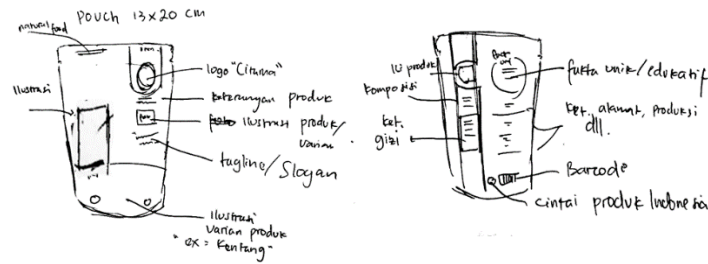 POUCH 13x20 cm
natural food
Ilustrasi
logo "Citama"
keterangan produk
foto Ilustrasi produk/
varian
tagline/Slogan
Ilustrasi
varian produk
"ex = kentang"
komposisi
ket.
gizi
fakta unik/edukatif
ket. alamat, produksi
dll.
Barcode
cintai produk Indonesia